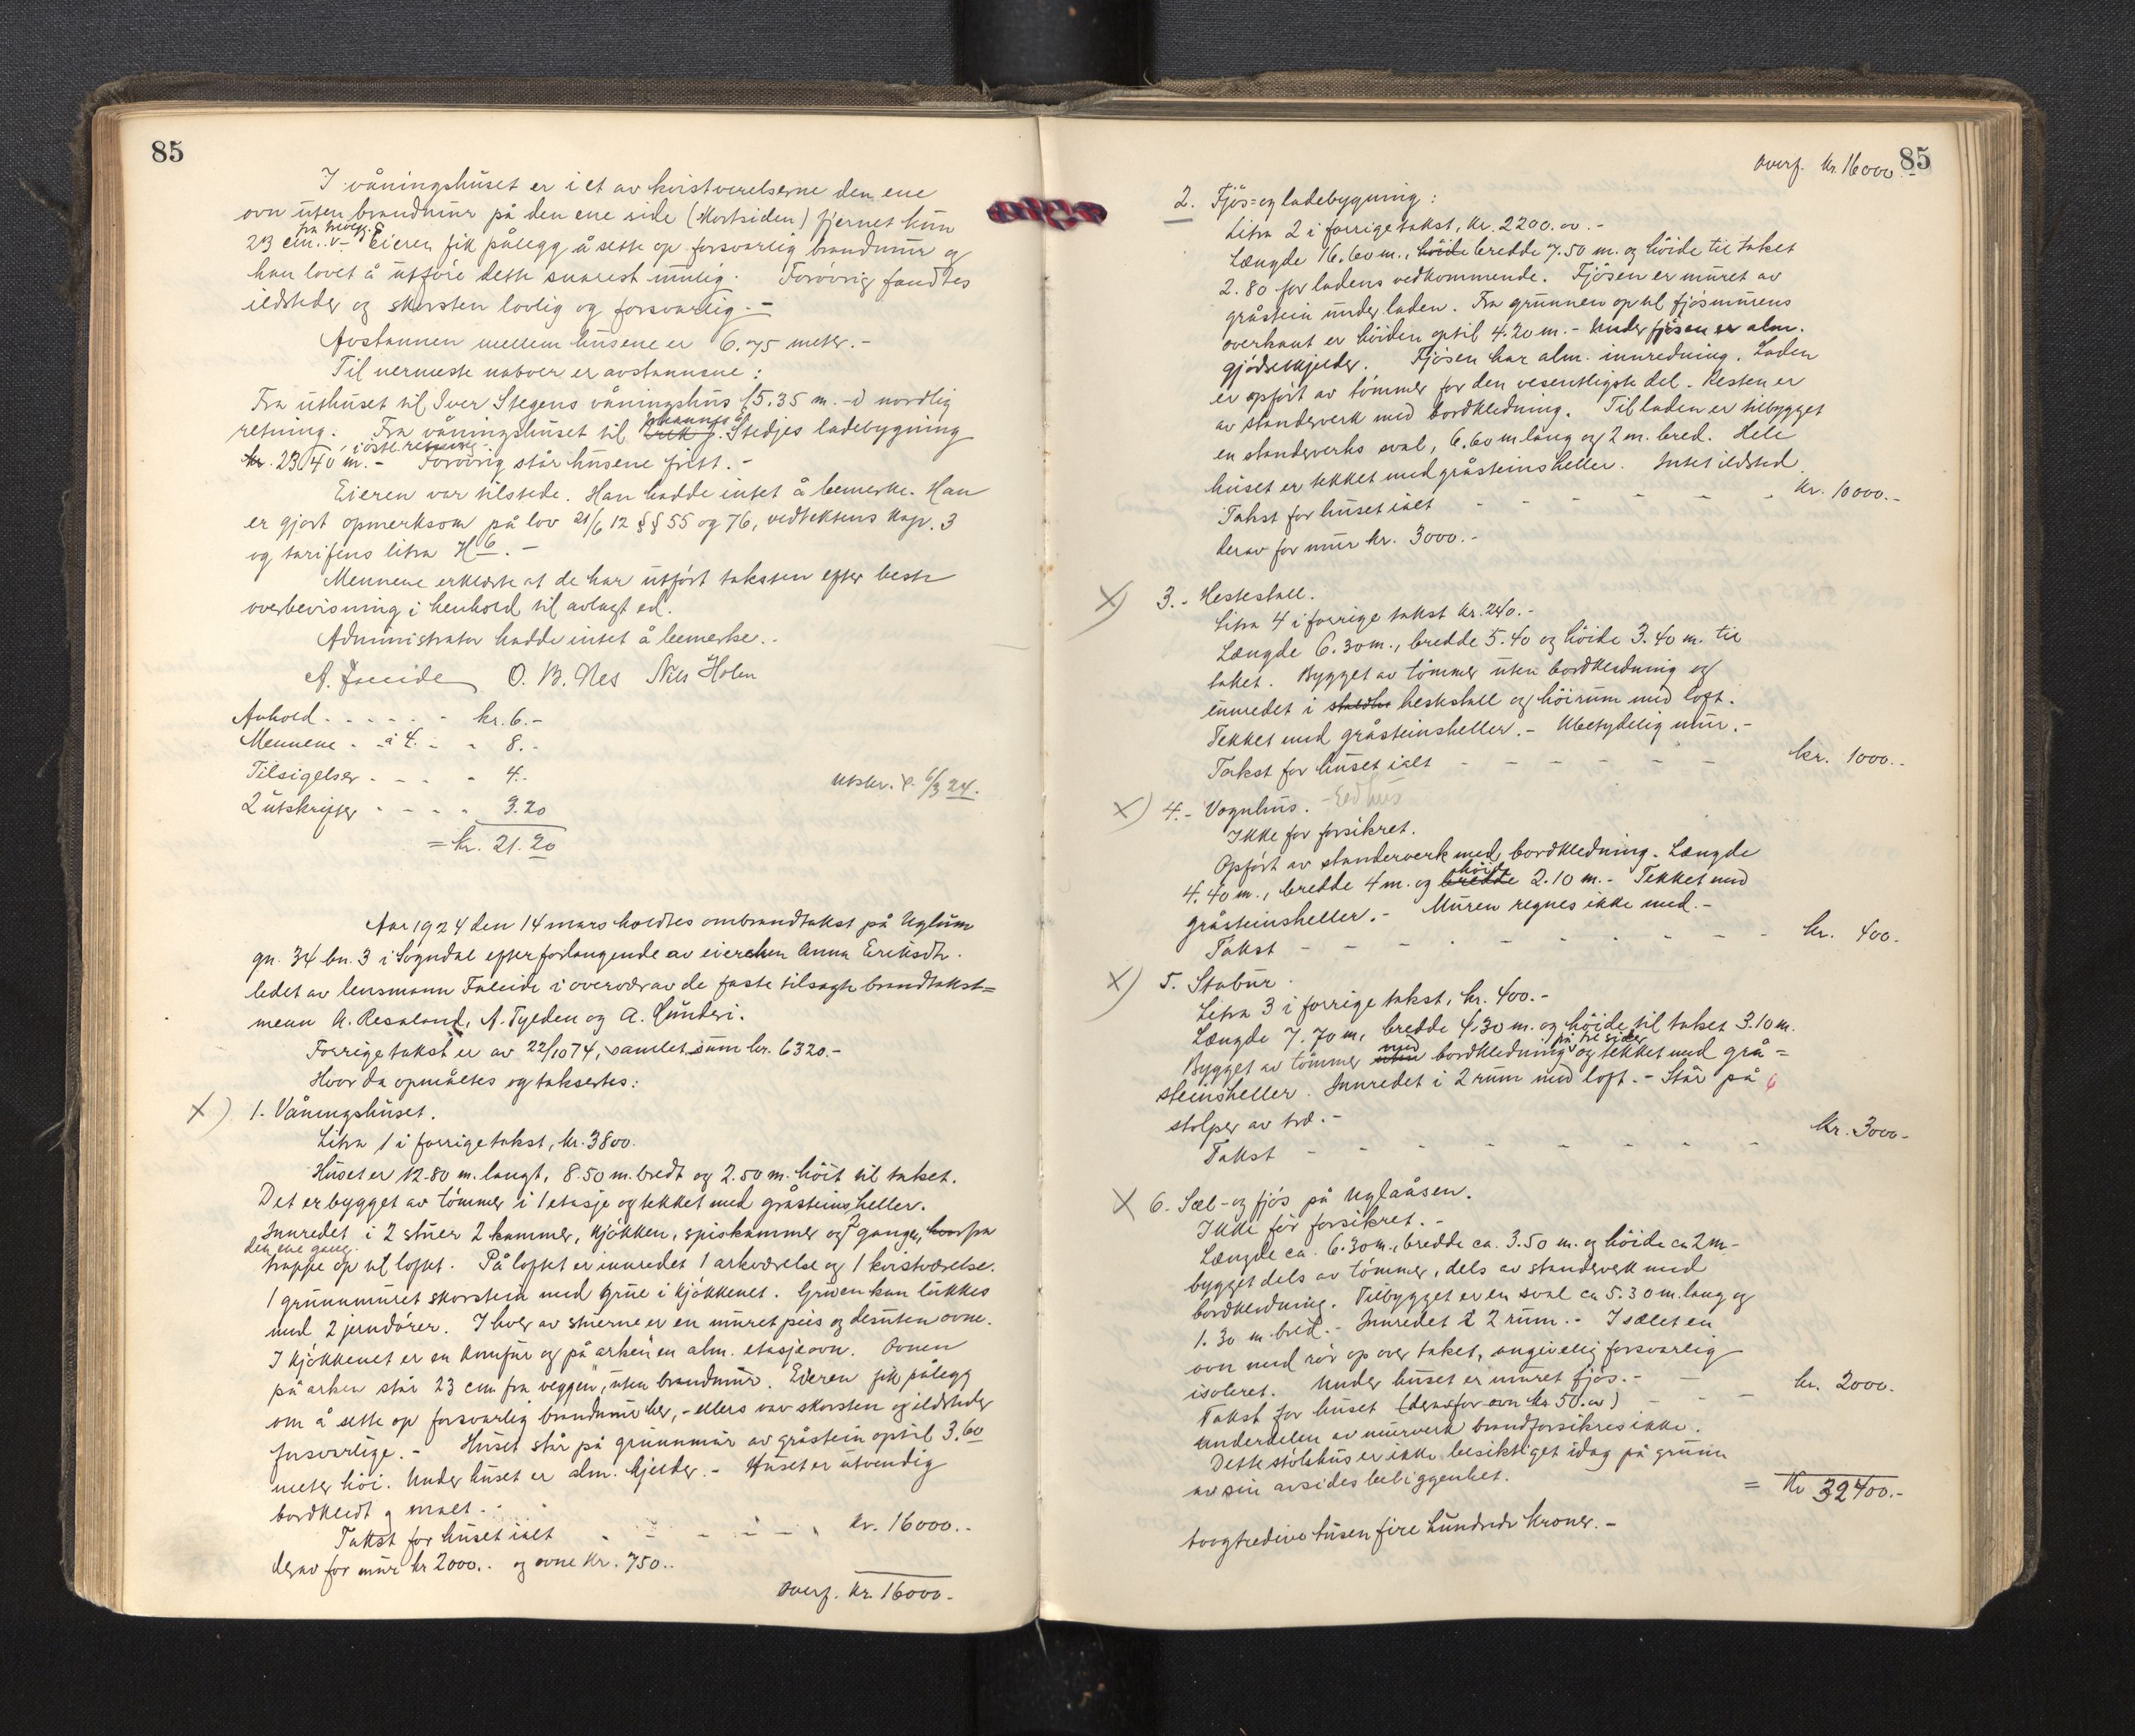 85
I våningshuset er i et av kvistværelserne den ene
ovn uten brandmur på den ene side (Kortsiden) fjernet kun
23 cm. fra trævegg. Eieren fik pålegg å sette op forsvarlig brandmur og
han lovet å utføre dette snarest mulig. Forøvrig fandtes
ildsteder og skorsten lovlig og forsvarlig.-
Avstannen mellem husene er 6.75 meter.-
Til nermeste naboer er avstannene:
Fra uthuset til Iver Stegens våningshus 15.35 m. i nordlig
retning. Fra våningshuset til Johannes Stedjes ladebygning
kr. 23.40 m. i østl. retning.- Forøvrig står husene fritt.-
Eieren var tilstede. Han hadde intet å bemerke. Han
er gjort opmerksom på lov 21/6 12 §§ 55 og 76, vedtektens kap. 3
og tarifens litra H 6.-
Mennene erklærte at de har utført taksten efter beste
overbevisning i henhold til avlagt ed.
Administrator hadde intet å bemerke..
A. Faleide O. B. Nes Nils Holen
Anhold - - - - - kr. 6.-
Mennene - à 4. - - 8.-
Tilsigelser - - - - 4.-
2 utskrifter - - - - 3.20
= kr. 21.20
Utskr. d. 6/3 24.
Aar 1924 den 14 mars holdtes ombrandtakst på Uglum
gn. 34 bn. 3 i Sogndal efter forlangende av eieren Anna Eriksdtr.
ledet av lensmann Faleide i overvær av de faste tilsagte brandtakst=
menn A. Resaland, A. Tylden og A. Gunderi.
Forrige takst er av 22/10 74, samlet sum kr. 6320.-
Hvor da opmåltes og taksertes:
X) 1. Våningshuset.
Litra 1 i forrige takst, kr. 3800.
Huset er 12.80 m. langt, 8.50 m. bredt og 2.50 m. høit til taket.
Det er bygget av tømmer i 1 etasje og tekket med gråsteinsheller.
Innredet i 2 stuer 2 kammer, kjøkken, spiskammer og 2 ganger, hvor fra
den ene gang
trappe op til loftet. På loftet er innredet 1 arkværelse og 1 kvistværelse.
1 grunnmuret skorstein med grue i kjøkkenet. Gruen kan lukkes
med 2 jerndører. I hver av stuerne er en muret peis og desuten ovne.
I kjøkkenet er en komfur og på arken en alm. etasjeovn. Ovnen
på arken står 23 cm fra veggen, uten brandmur. Eieren fik pålegg
om å sette op forsvarlig brandmur her,- ellers var skorsten og ildsteder
forsvarlige.- Huset står på grunnmur av gråstein optil 3.60
meter høi. Under huset er alm. kjelder.- Huset er utvendig
bordkledt og malt.-
Takst for huset ialt - - - - - kr. 16000.-
derav for mur kr 2000.. og ovne kr. 750..
overf. kr. 16000.-
85
overf. kr. 16000.-
2. Fjøs= og ladebygning:
Litra 2 i forrige takst, kr. 2200.00.-
Længde 16.60 m., høide bredde 7.50 m. og høide til taket
2.80 for ladens vedkommende. Fjøsen er muret av
gråstein under laden. Fra grunnen op til fjøsmurens
overkant er høiden optil 4.20 m.- Under fjøsen er alm.
gjødselkjelder. Fjøsen har alm. innredning. Laden
er opført av tømmer for den vesentligste del. Resten er
av standerverk med bordkledning. Til laden er tilbygget
en standerverks sval, 6.60 m lang og 2 m. bred. Hele
huset er tekket med gråsteinsheller. Intet ildsted.
Takst for huset ialt - - - - - - kr. 10000.-
derav for mur kr. 3000.-
X) 3.- Hestestall.
Litra 4 i forrige takst kr. 240.-
Længde 6.30 m., bredde 5.40 og høide 3.40 m. til
taket. Bygget av tømmer uten bordkledning og
innredet i staldbr hestestall og høirum med loft.
Tekket med gråsteinsheller.- Ubetydelig mur.-
Takst for huset ialt - - - - - - kr. 1000..
X) 4.- Vognhus. - Eldhus
Ikke før forsikret.
Opført av standerverk med bordkledning. Længde
4.40 m., bredde 4 m. og bredde høide 2.10 m.- Tekket med
gråsteinsheller.- Muren regnes ikke med.-
Takst - - - - - - - - kr. 400.
X) 5. Stabur.
Litra 3 i forrige takst, kr. 400.-
Længde 7.70 m, bredde 4.30 m. og høide til taket 3.10 m.
Bygget av tømmer uten med bordkledning på tre sider og tekket med grå=
steinsheller. Innredet i 2 rum med loft.- Står på 6
stolper av træ.-
Takst - - - - - - - kr. 3000-
X 6. Sæl- og fjøs på Uglaåsen.
Ikke før forsikret.-
Længde ca. 6.30 m., bredde ca. 3.50 m. og høide ca 2 m-
bygget dels av tømmer, dels av standerverk med
bordkledning. Tilbygget er en sval ca 5.30 m. lang og
1.30 m. bred.- Innredet i 2 rum.- I sælet en
ovn med rør op over taket, angivelig forsvarlig
isoleret. Under huset er muret fjøs.-
Takst for huset (derav for ovn kr 50.00) - - - kr. 2000.
Underdelen av murverk brandforsikres ikke.
Dette stølshus er ikke besiktiget idag på grunn
av sin avsides beliggenhet.
= Kr 32400.-
toogtredive tusen fire hundrede kroner.-